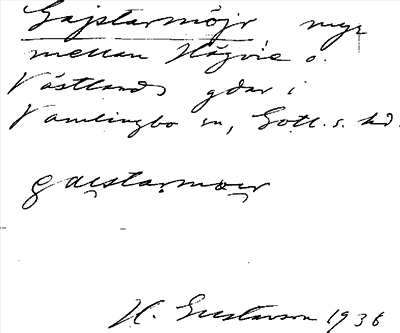 Gajstarmöjr, myr
mellan Hägvis o.
Västlands gdar i
Vamlingbo sn, Gotl. s. hd.
gaistarmoir
H. Gustavson 1936